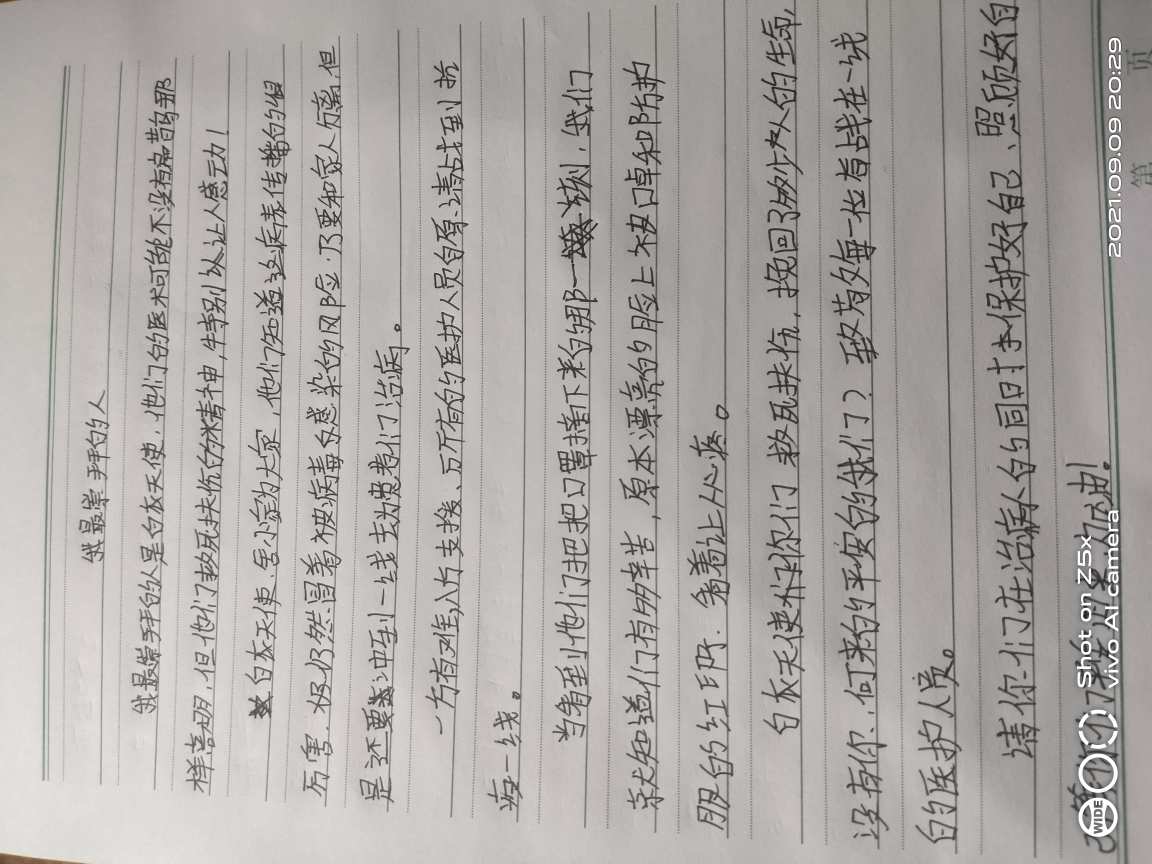 我最崇拜的人
我最崇拜的人是白衣天使,他们的医术可能不没有扁鹊那
样高明,但他们救死扶伤的精神,特别让人感动!
白衣天使,舍小家为大家,他们知道这病毒传播的很
厉害,极仍然冒着被病毒感染的风险,乃要和家人分离,但
是还要冲到一线去为患者们治病。
一方有难,八方支援、万所有的医护人员自愿请战到抗
疫一线。
当看到他们把把口罩摘下来的那一刻,我们
就知道们有多辛苦,原本漂亮的脸上被口罩和防护
服的红印,看着让人心疼。
白衣天使们你们救死扶伤,挽回了多少人的生命,
没有你,何来的平安的我们?致敬每一位奋战在一线
的医护人员。
请你们在治病人的同时本保护好自己、照顾好自
己等你们
加油!
第 页
2021.09.09 20:29
WIDE
Shot on Z5x
vivo AI camera